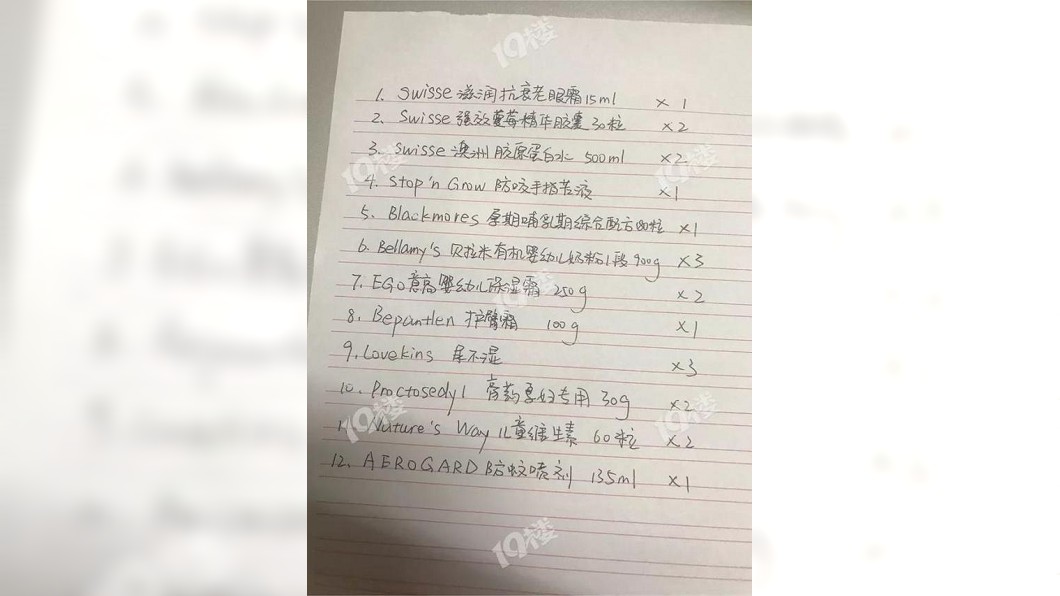 19楼
1. Swisse 滋润抗衰老眼霜15ml × 1
2. Swisse 强效蔓莓精华胶囊 30粒 ×2
3. Swisse 澳洲胶原蛋白水 500ml ×2
19楼 19楼
4. Stop'n Grow 防咬手指苦液 ×1
5. Blackmores 孕期哺乳期综合配方180粒 ×1
6. Bellamy's 贝拉米有机婴幼儿奶粉1段 900g ×3
7. EGO 意高婴幼儿保湿霜 250g ×2
19楼
8. Bepantlen 护臀霜 100g ×1
9. Lovekins 尿不湿 ×3
10. Proctosedyl 膏药孕妇专用 30g ×2
19楼 19楼
11. Nuture's Way 儿童维生素 60粒 ×2
12. AEROGARD 防蚊喷剂 135ml ×1
19楼